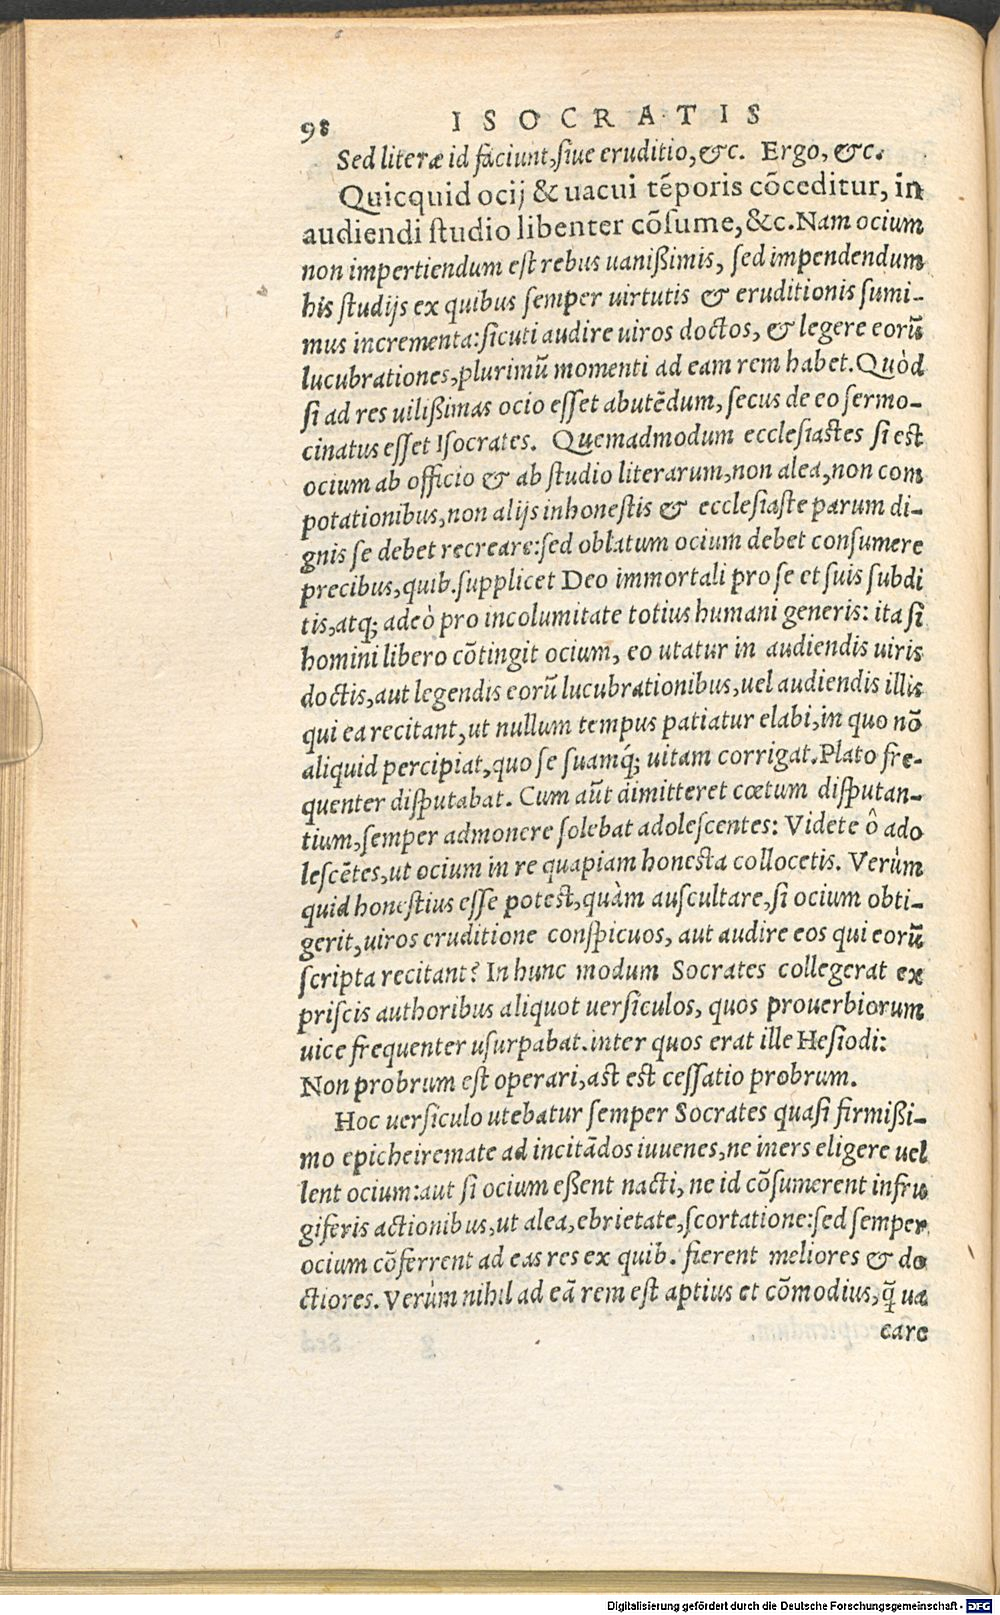 98 ISOCRATIS
Sed literæ id faciunt, siue eruditio, &c. Ergo, &c.
Quicquid ocij & uacui tẽporis cõceditur, in
audiendi studio libenter cõsume, &c. Nam ocium
non impertiendum est rebus uanißimis, sed impendendum
his studijs ex quibus semper uirtutis & eruditionis sumi-
mus incrementa: sicuti audire uiros doctos, & legere eorũ
lucubrationes, plurimũ momenti ad eam rem habet. Quòd
si ad res uilißimas ocio esset abutẽdum, secus de eo sermo-
cinatus esset Isocrates. Quemadmodum ecclesiastes si est
ocium ab officio & ab studio literarum, non alea, non com
potationibus, non alijs inhonestis & ecclesiaste parum di-
gnis se debet recreare: sed oblatum ocium debet consumere
precibus, quib. supplicet Deo immortali pro se et suis subdi
tis, atq; adeò pro incolumitate totius humani generis: ita si
homini libero cõtingit ocium, eo utatur in audiendis uiris
doctis, aut legendis eorũ lucubrationibus, uel audiendis illis
qui ea recitant, ut nullum tempus patiatur elabi, in quo nõ
aliquid percipiat, quo se suamq́; uitam corrigat. Plato fre-
quenter disputabat. Cum aũt dimitteret cœtum disputan-
tium, semper admonere solebat adolescentes: Videte ô ado
lescẽtes, ut ocium in re quapiam honesta collocetis. Verùm
quid honestius esse potest, quàm auscultare, si ocium obti-
gerit, uiros eruditione conspicuos, aut audire eos qui eorũ
scripta recitant? In hunc modum Socrates collegerat ex
priscis authoribus aliquot uersiculos, quos prouerbiorum
uice frequenter usurpabat. inter quos erat ille Hesiodi:
Non probrum est operari, ast est cessatio probrum.
Hoc uersiculo utebatur semper Socrates quasi firmißi-
mo epicheiremate ad incitãdos iuuenes, ne iners eligere uel
lent ocium: aut si ocium eßent nacti, ne id cõsumerent infru
giferis actionibus, ut alea, ebrietate, scortatione: sed semper
ocium cõferrent ad eas res ex quib. fierent meliores & do
ctiores. Verùm nihil ad eã rem est aptius et cõmodius, q̃ ua
care
Digitalisierung gefördert durch die Deutsche Forschungsgemeinschaft - DFG